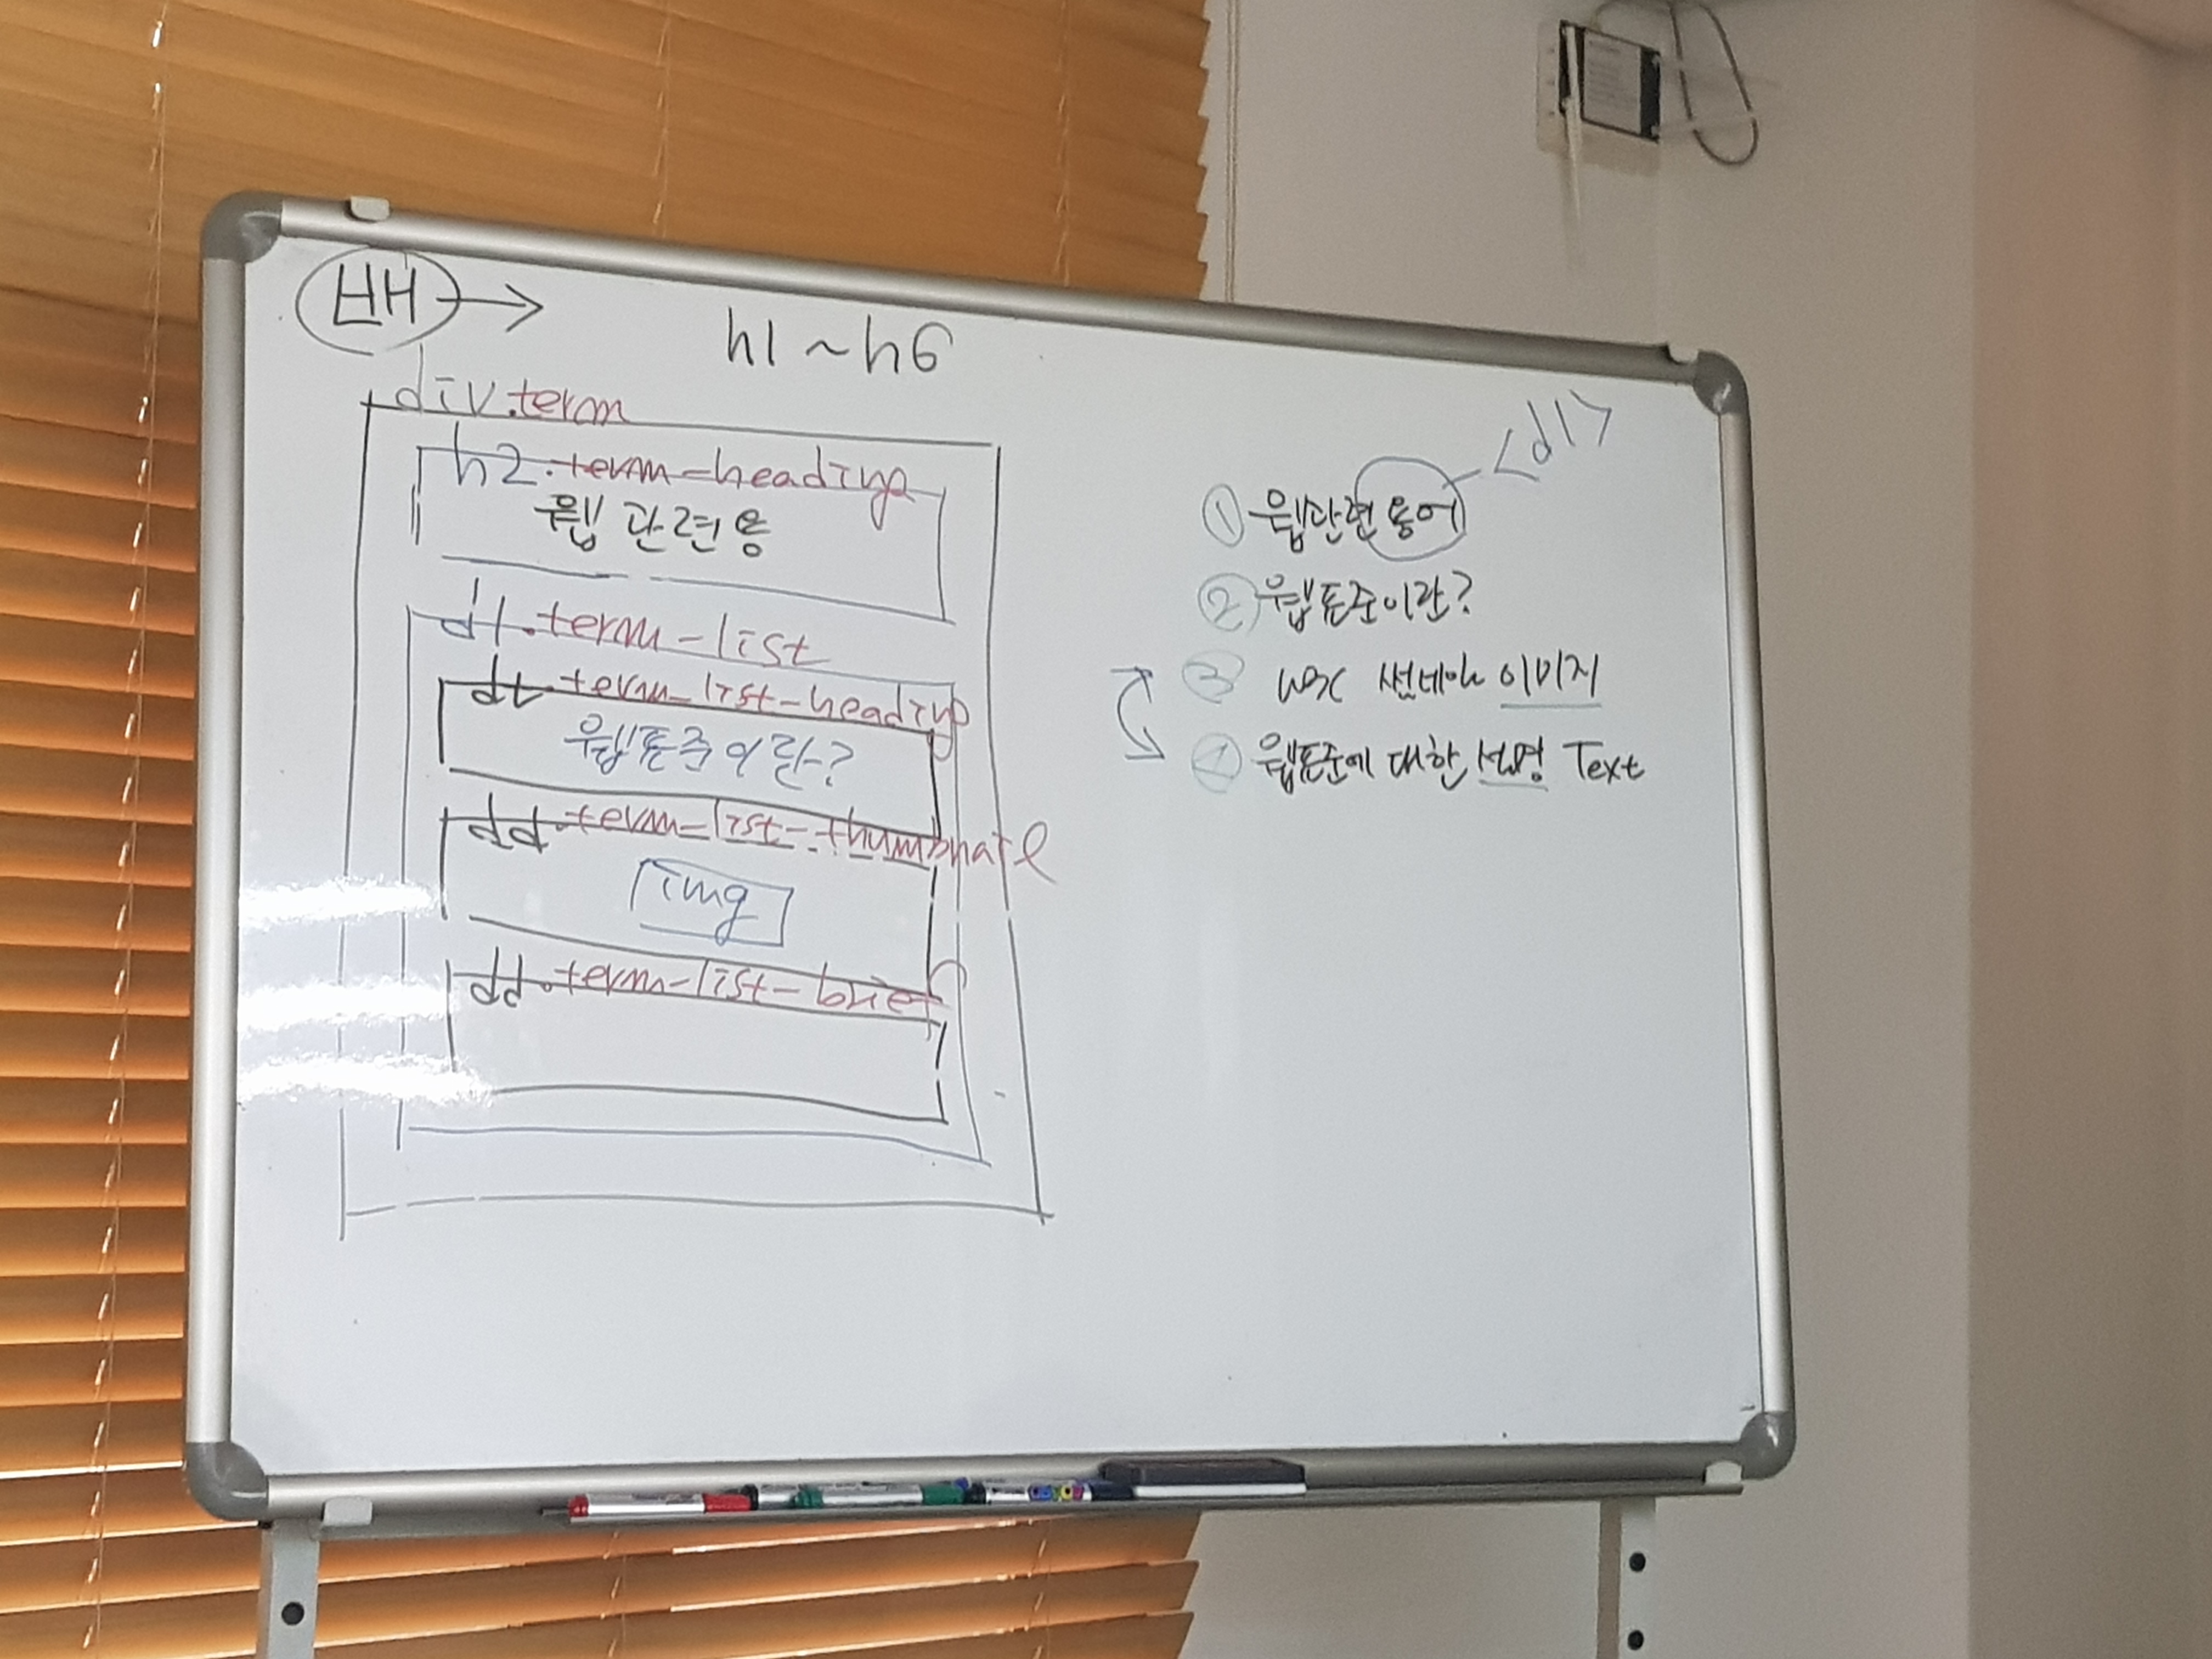 h1 ~ h6
div.term
h2.term-heading
웹 관련용
dl.term-list
dt.term-list-heading
웹표준이란?
dd.term-list-thumbnail
img
dd.term-list-brief
<dl>
① 웹관련용어
② 웹표준이란?
③ W3C 썸네일 이미지
④ 웹표준에 대한 설명 Text